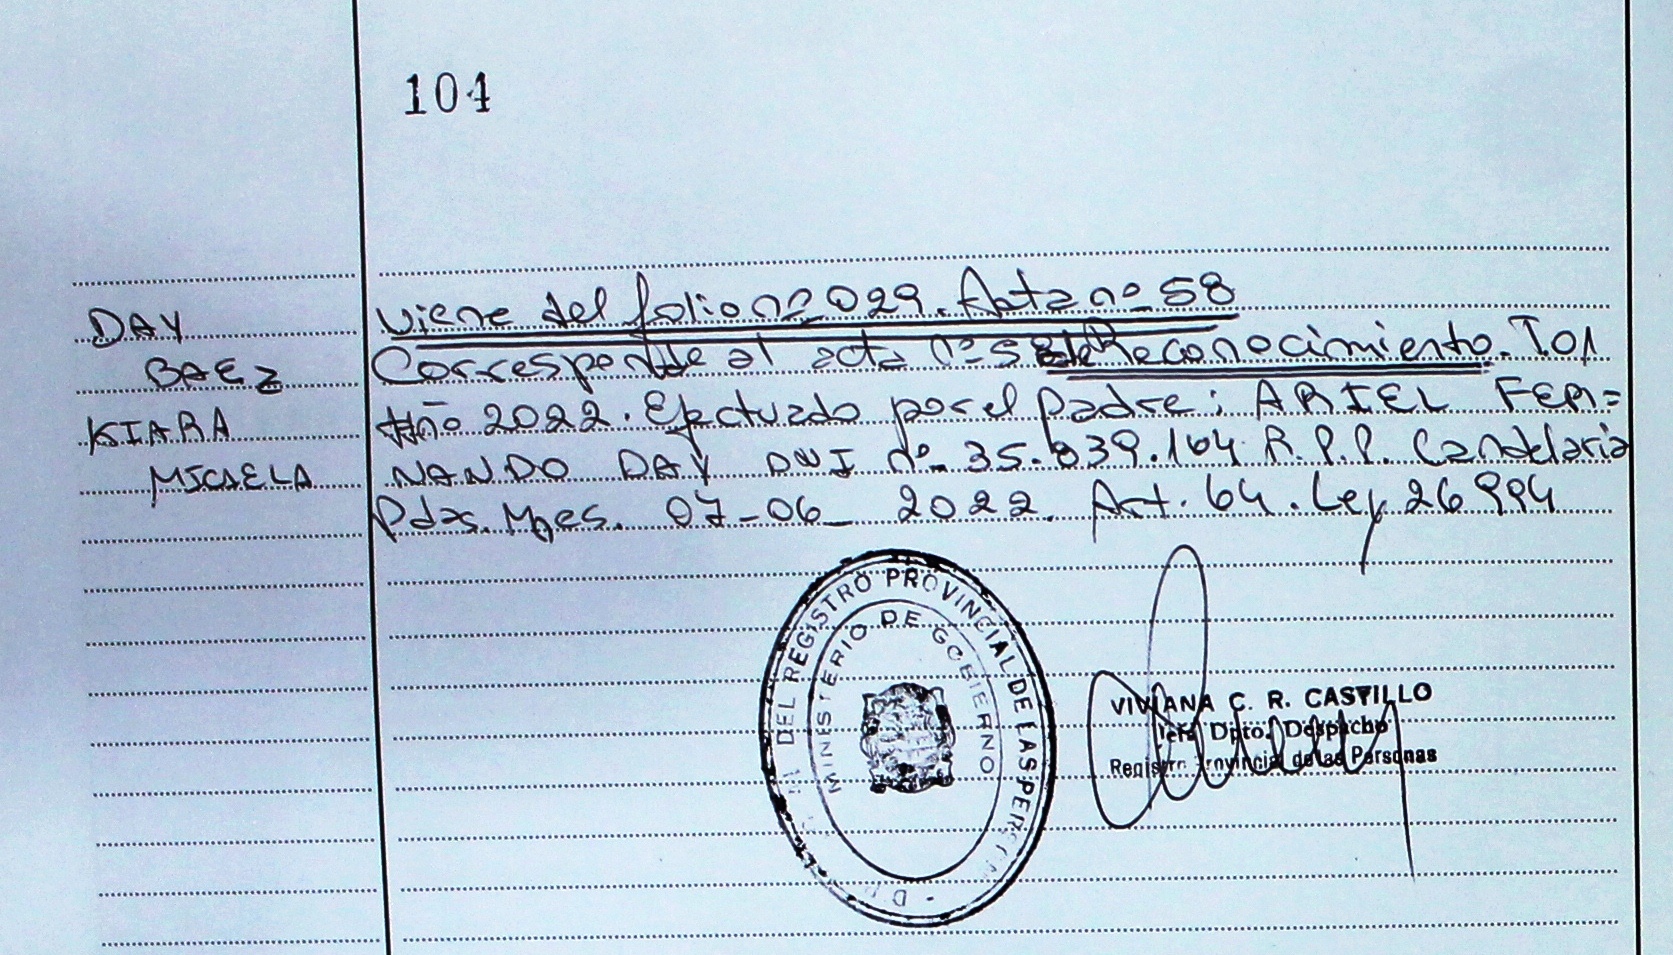 104
DAY
BAEZ
KIARA
MICAELA
Viene del folio nº 029. Acta nº 58
Corresponde al acta nº 58 de Reconocimiento. T.01
Año 2022. Efectuado por el padre: ARIEL FER=
NANDO DAY DNI nº 35.839.164 R.P.P. Candelaria
Pdas. Mnes. 07-06-2022. Art. 64. Ley 26994
DEL REGISTRO PROVINCIAL DE LAS PERSONAS
MINISTERIO DE GOBIERNO
VIVIANA C. R. CASTILLO
Jefa Dpto. Despacho
Registro Provincial de las Personas